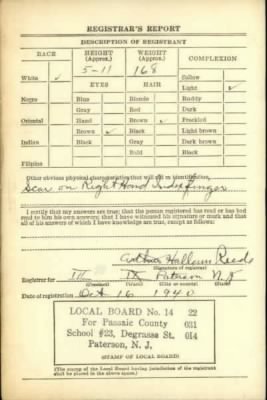 REGISTRAR'S REPORT
DESCRIPTION OF REGISTRANT
RACE HEIGHT (Approx.) WEIGHT (Approx.) COMPLEXION
5-11 168 Sallow
White ✓ EYES HAIR Light ✓
Negro Blue Blonde Ruddy
Gray Red Dark
Oriental Hazel Brown ✓ Freckled
Brown ✓ Black Light brown
Indian Black Gray Dark brown
Bald Black
Filipino
Other obvious physical characteristics that will aid in identification
Scar on Right Hand Index finger
I certify that my answers are true; that the person registered has read or has had
read to him his own answers; that I have witnessed his signature or mark and that
all of his answers of which I have knowledge are true, except as follows:
Arthur Reeds
(Signature of registrar)
Registrar for Paterson N.J
(Precinct) (Ward) (City or county) (State)
Date of registration Oct 16 1940
LOCAL BOARD No. 14 22
For Passaic County 031
School #23, Degrasse St. 014
Paterson, N. J.
(STAMP OF LOCAL BOARD)
(The stamp of the Local Board having jurisdiction of the registrant
shall be placed in the above space.)